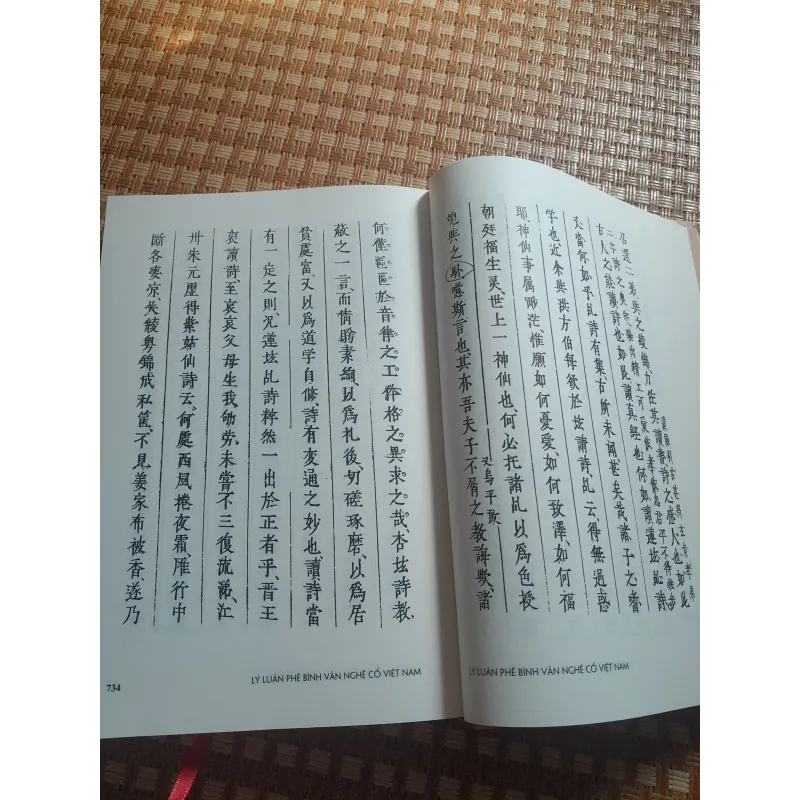 古人之能讀詩也如此讀真經也何如讀蓮垓乩詩
又當何如乎乩詩有集古所未聞甚矣哉諸子之嗜
学也、近余與洪方伯每欲於垓請詩、乩云得無過惑
耶、神仙事属眇茫、惟願如何憂愛、如何致澤、如何福
朝廷福生灵、世上一神仙也、何必托諸乩以爲色授
又烏乎取
魂與之乩噫斯言也、其亦吾夫子不屑之教誨歟、諸
LÝ LUẬN PHÊ BÌNH VĂN NGHỆ CỔ VIỆT NAM
何僅區區於音律之工、作格之異求之哉、杏垓詩教、
蔽之一言、而倩盼素絢、以爲礼後、切磋琢磨、以爲居
貧處富、又以爲道学自修、詩有变通之妙也、讀詩當
有一定之則、况蓮垓乩詩粹然一出於正者乎、晋王
裒讀詩、至哀哀父母生我劬劳、未嘗不三復流涕、江
卅朱元厘得紫姑仙詩云、何處西風捲夜霜、雁行中
斷各妻凉、吴綾粤錦成私篋、不見姜家布被香、遂乃
734
LÝ LUẬN PHÊ BÌNH VĂN NGHỆ CỔ VIỆT NAM